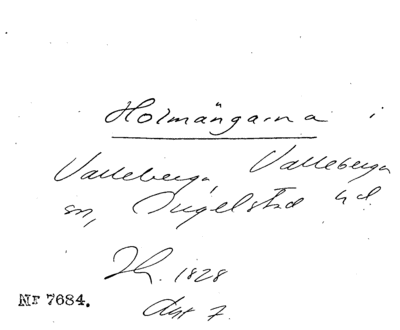 Holmängarna i
Valleberga, Valleberga
sn, Ingelstad hd.
1828
Akt 7.
NF 7684.